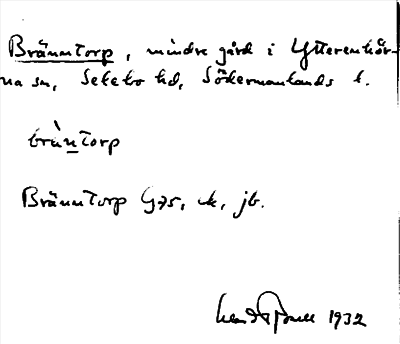 Bränntorp, mindre gård i Ytterenhör-
na sn, Selebo hd, Södermanlands l.
bräntorp
Bränntorp G75, jb.
1932